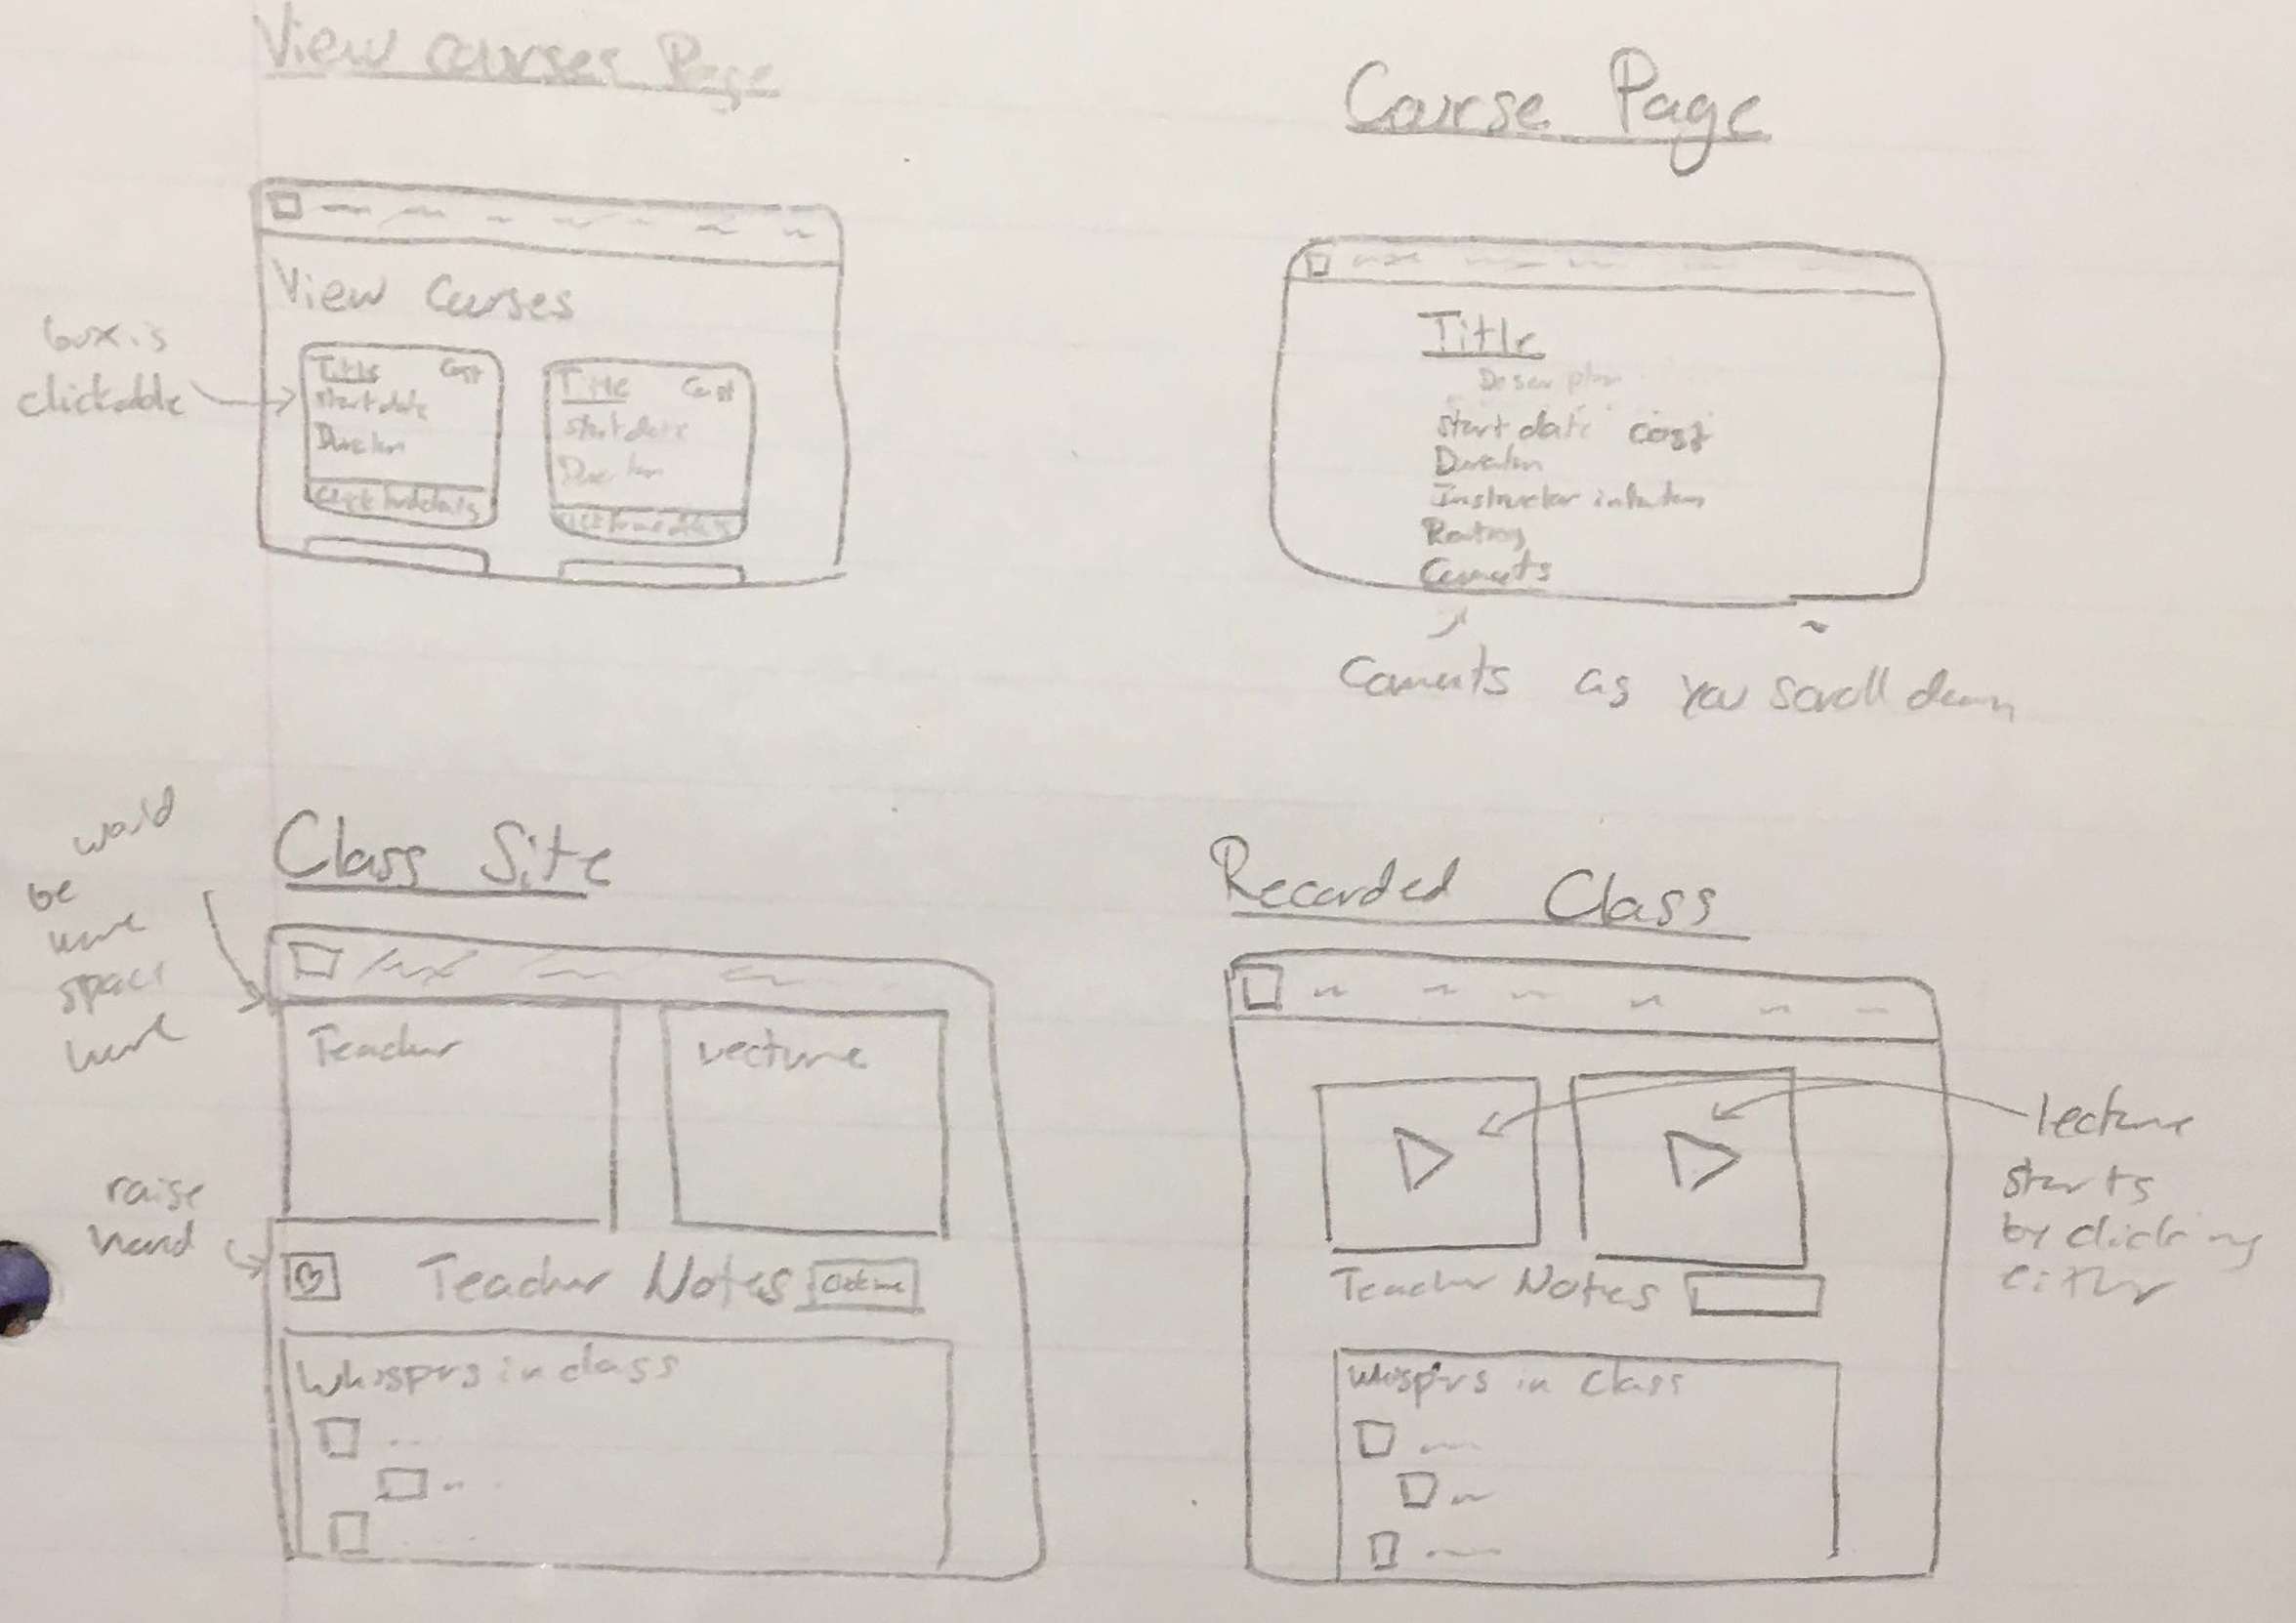 View courses Page
View Courses
box is
clickable
Title Cost
start date
Duration
Click for details
Title Cost
start date
Duration
Course Page
Title
Description
start date cost
Duration
Instructor
Rating
Comments
Comments as you scroll down
Class Site
would
be
more
space
here
Teacher
Lecture
raise
hand
Teacher Notes
Whispers in class
Recorded Class
lecture
starts
by clicking
either
Teacher Notes
Whispers in class